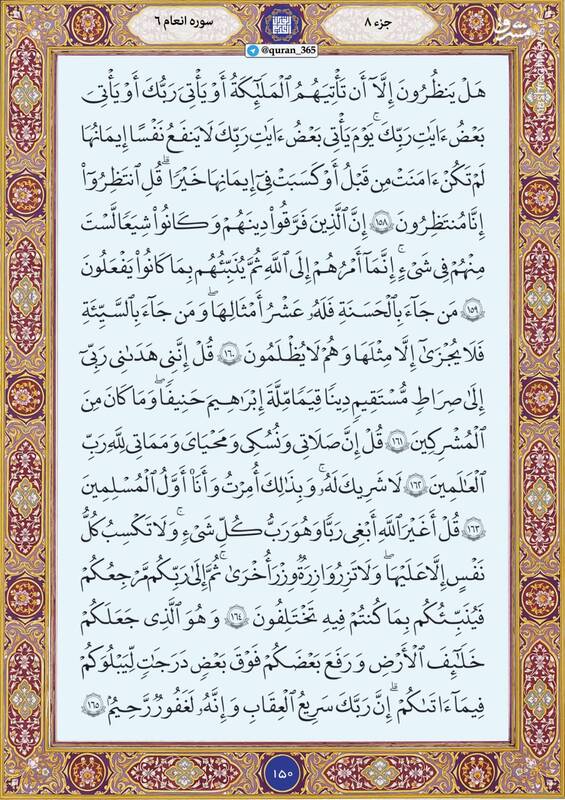 جزء ۸
سوره انعام ۶
مشرق
@quran_365
هَلْ يَنظُرُونَ إِلَّآ أَن تَأْتِيَهُمُ ٱلْمَلَٰٓئِكَةُ أَوْ يَأْتِىَ رَبُّكَ أَوْ يَأْتِىَ
بَعْضُ ءَايَٰتِ رَبِّكَ ۗ يَوْمَ يَأْتِى بَعْضُ ءَايَٰتِ رَبِّكَ لَا يَنفَعُ نَفْسًا إِيمَٰنُهَا
لَمْ تَكُنْ ءَامَنَتْ مِن قَبْلُ أَوْ كَسَبَتْ فِىٓ إِيمَٰنِهَا خَيْرًا ۗ قُلِ ٱنتَظِرُوٓا۟
إِنَّا مُنتَظِرُونَ ١٥٨ إِنَّ ٱلَّذِينَ فَرَّقُوا۟ دِينَهُمْ وَكَانُوا۟ شِيَعًا لَّسْتَ
مِنْهُمْ فِى شَىْءٍ ۚ إِنَّمَآ أَمْرُهُمْ إِلَى ٱللَّهِ ثُمَّ يُنَبِّئُهُم بِمَا كَانُوا۟ يَفْعَلُونَ
١٥٩ مَن جَآءَ بِٱلْحَسَنَةِ فَلَهُۥ عَشْرُ أَمْثَالِهَا ۖ وَمَن جَآءَ بِٱلسَّيِّئَةِ
فَلَا يُجْزَىٰٓ إِلَّا مِثْلَهَا وَهُمْ لَا يُظْلَمُونَ ١٦٠ قُلْ إِنَّنِى هَدَىٰنِى رَبِّىٓ
إِلَىٰ صِرَٰطٍ مُّسْتَقِيمٍ دِينًا قِيَمًا مِّلَّةَ إِبْرَٰهِيمَ حَنِيفًا ۚ وَمَا كَانَ مِنَ
ٱلْمُشْرِكِينَ ١٦١ قُلْ إِنَّ صَلَاتِى وَنُسُكِى وَمَحْيَاىَ وَمَمَاتِى لِلَّهِ رَبِّ
ٱلْعَٰلَمِينَ ١٦٢ لَا شَرِيكَ لَهُۥ ۖ وَبِذَٰلِكَ أُمِرْتُ وَأَنَا۠ أَوَّلُ ٱلْمُسْلِمِينَ
١٦٣ قُلْ أَغَيْرَ ٱللَّهِ أَبْغِى رَبًّا وَهُوَ رَبُّ كُلِّ شَىْءٍ ۚ وَلَا تَكْسِبُ كُلُّ
نَفْسٍ إِلَّا عَلَيْهَا ۚ وَلَا تَزِرُ وَازِرَةٌ وِزْرَ أُخْرَىٰ ۚ ثُمَّ إِلَىٰ رَبِّكُم مَّرْجِعُكُمْ
فَيُنَبِّئُكُم بِمَا كُنتُمْ فِيهِ تَخْتَلِفُونَ ١٦٤ وَهُوَ ٱلَّذِى جَعَلَكُمْ
خَلَٰٓئِفَ ٱلْأَرْضِ وَرَفَعَ بَعْضَكُمْ فَوْقَ بَعْضٍ دَرَجَٰتٍ لِّيَبْلُوَكُمْ
فِى مَآ ءَاتَىٰكُمْ ۗ إِنَّ رَبَّكَ سَرِيعُ ٱلْعِقَابِ وَإِنَّهُۥ لَغَفُورٌ رَّحِيمٌۢ ١٦٥
١٥٠